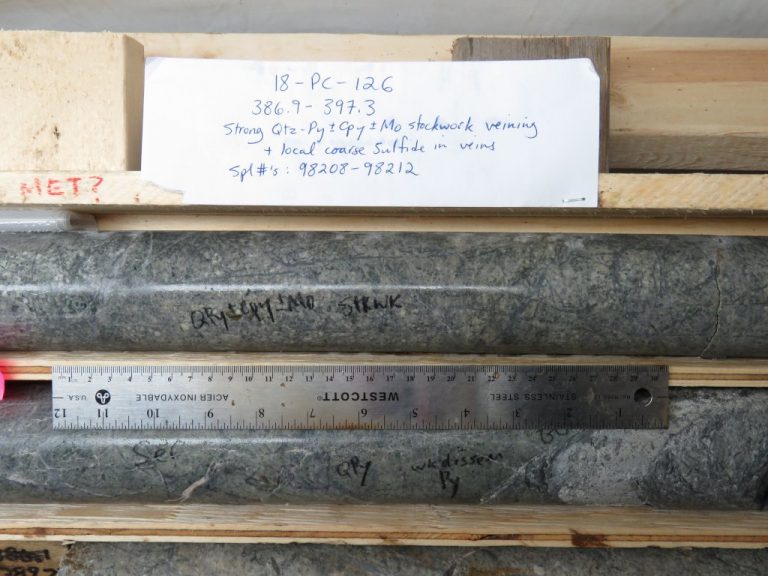 18-PC-126
386.9-397.3
Strong Qtz-Py±Cpy±Mo stockwork veining
+ local coarse Sulfide in veins
Spl #'s: 98208-98212
MET?
QPy±Cpy±Mo STKWK
1 2 3 4 5 6 7 8 9 10 11 12 13 14 15 16 17 18 19 20 21 22 23 24 25 26 27 28 29 30
U.S.A. ACIER INOXYDABLE WESTCOTT STAINLESS STEEL
12 11 10 9 8 7 6 5 4 3 2 1
Ser Ser QPy wk dissem
Py